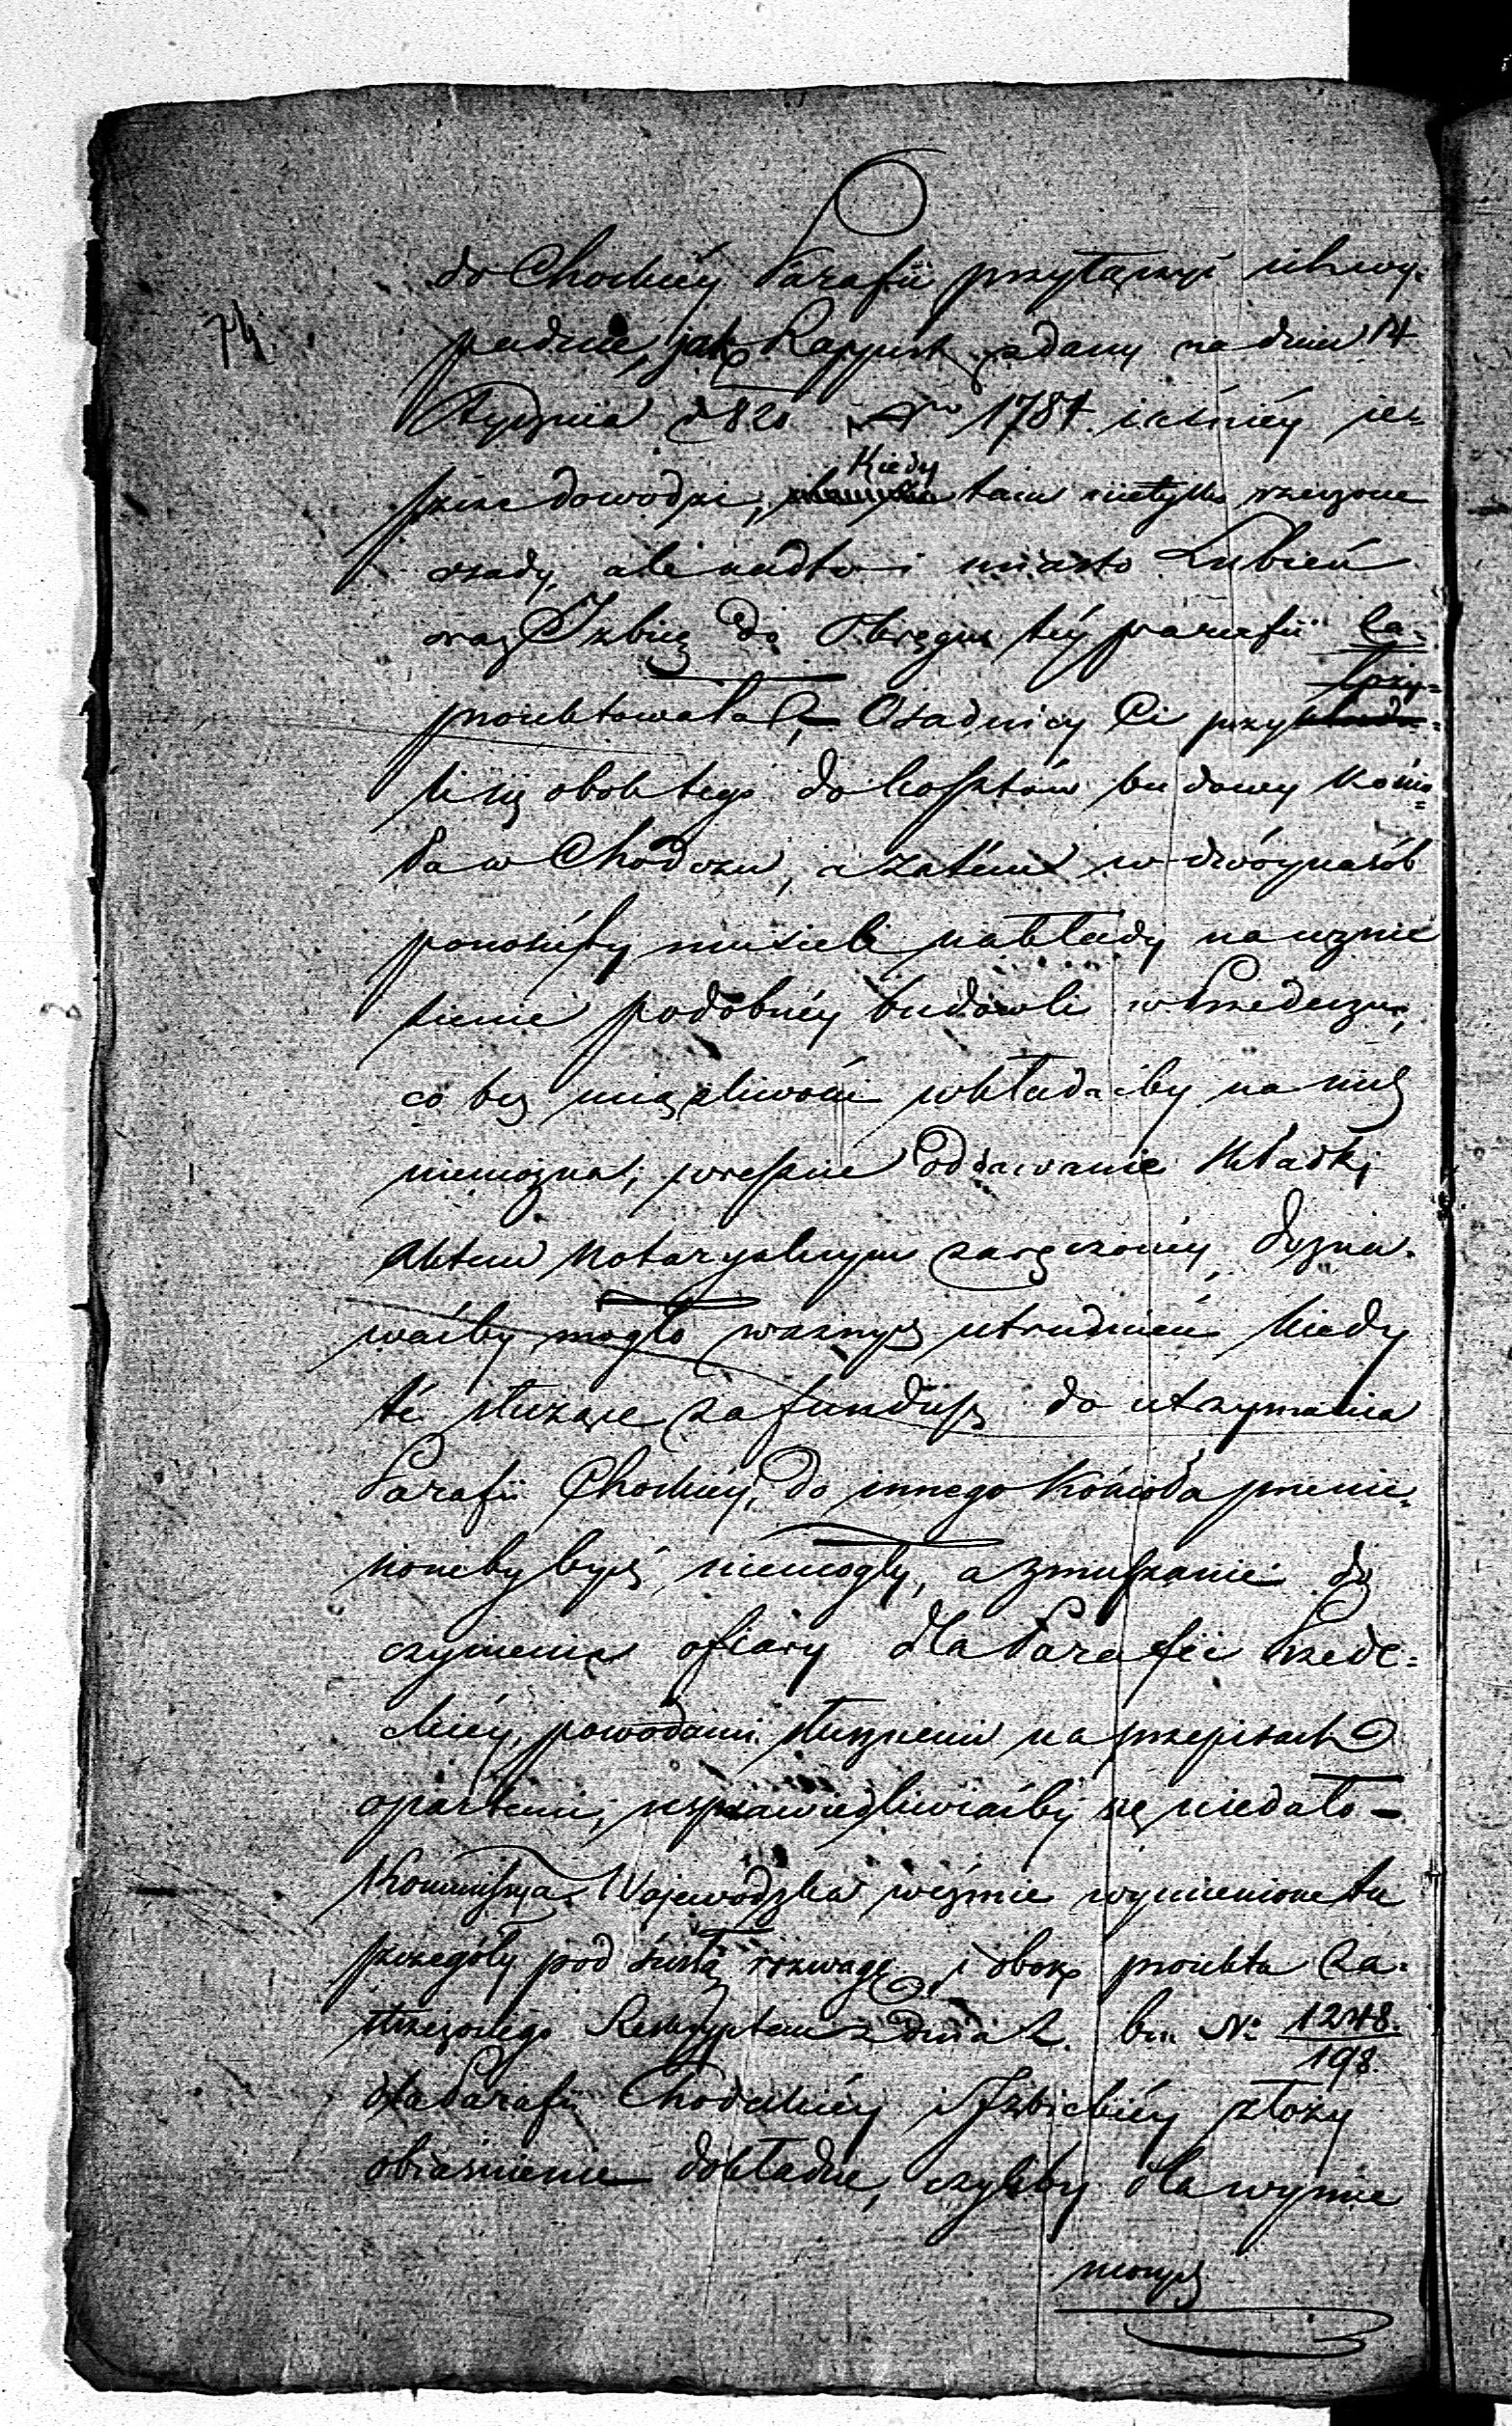 74.
do Chockiéy Parafii przyłączyć ich wy-
padnie, jak Rapport zdany na dniu 14
Stycznia 1820 No 1784. iaśniéy ie-
szcze dowodzi, Kiedy tam nietylko rzeczone
osady, ale nadto i miasto Lubień
oraz Izbicę do Okręgu téy parafii za-
proiektowała, Osadnicy Ci przy przy-
li się obok tego do kosztów budowy Kościo-
ła w Chodczu, a zatém w dwóynasób
ponosićby musieli nakłady na wznie
sienie podobnéy budowli w Przedeczu,
co bez uciążliwości wkładaćby na nich
niemożna; wreszcie oddawanie składki
Aktem Notaryalnym zaręczonéy, dozna-
waćby mogło ważnych utrudnień kiedy
té służące za fundusz do utrzymania
Parafii Chockiéy, do innego Kościoła przenie-
sioneby bydź niemogły, a zmuszanie do
czynienia ofiary dla Parafii Przede-
ckiéy, powodami słusznemi na przepisach
opartemi, usprawiedliwiaćby się niedało –
Kommissya Woiewódzka weźmie wymienione tu
szczegóły pod ścisłą rozwagę, i obok proiektu za-
strzeżonego Reskryptem z dnia 2. b.m. No 1248./198.
dla Parafii Chodeckiéy i Izbickiéy złoży
obiaśnienie dokładne, czyliby dla wymie
nionych